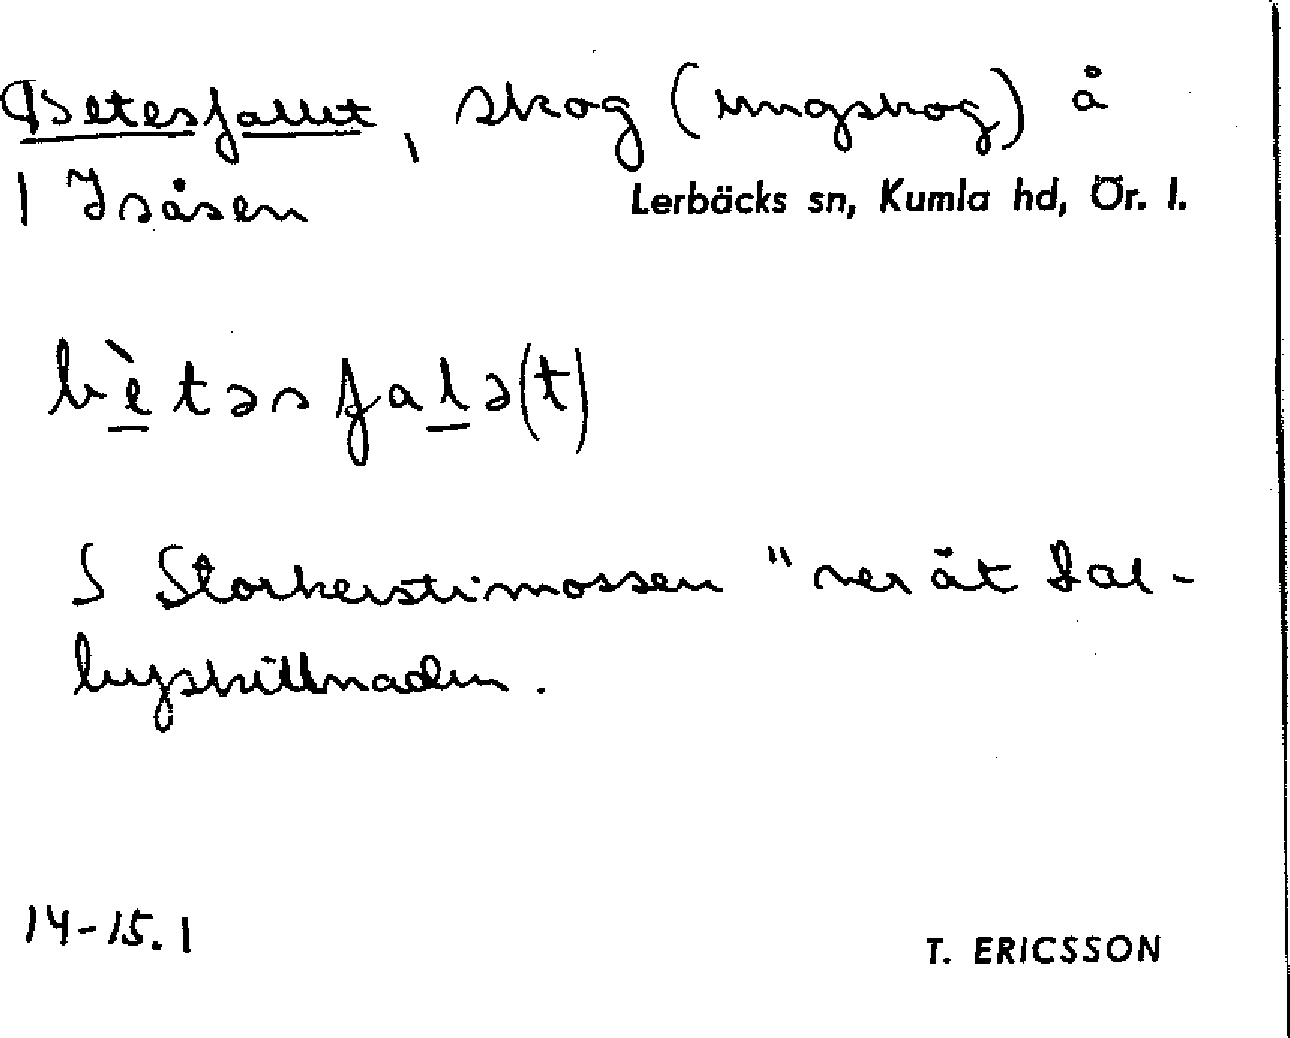 Betesfallet, skog (ungskog) å
1 Isåsen
Lerbäcks sn, Kumla hd, Ör. l.
bètəsfalə(t)
S Storkerstimossen "ner åt Dal-
byskillnaden.
14-15.1
T. ERICSSON